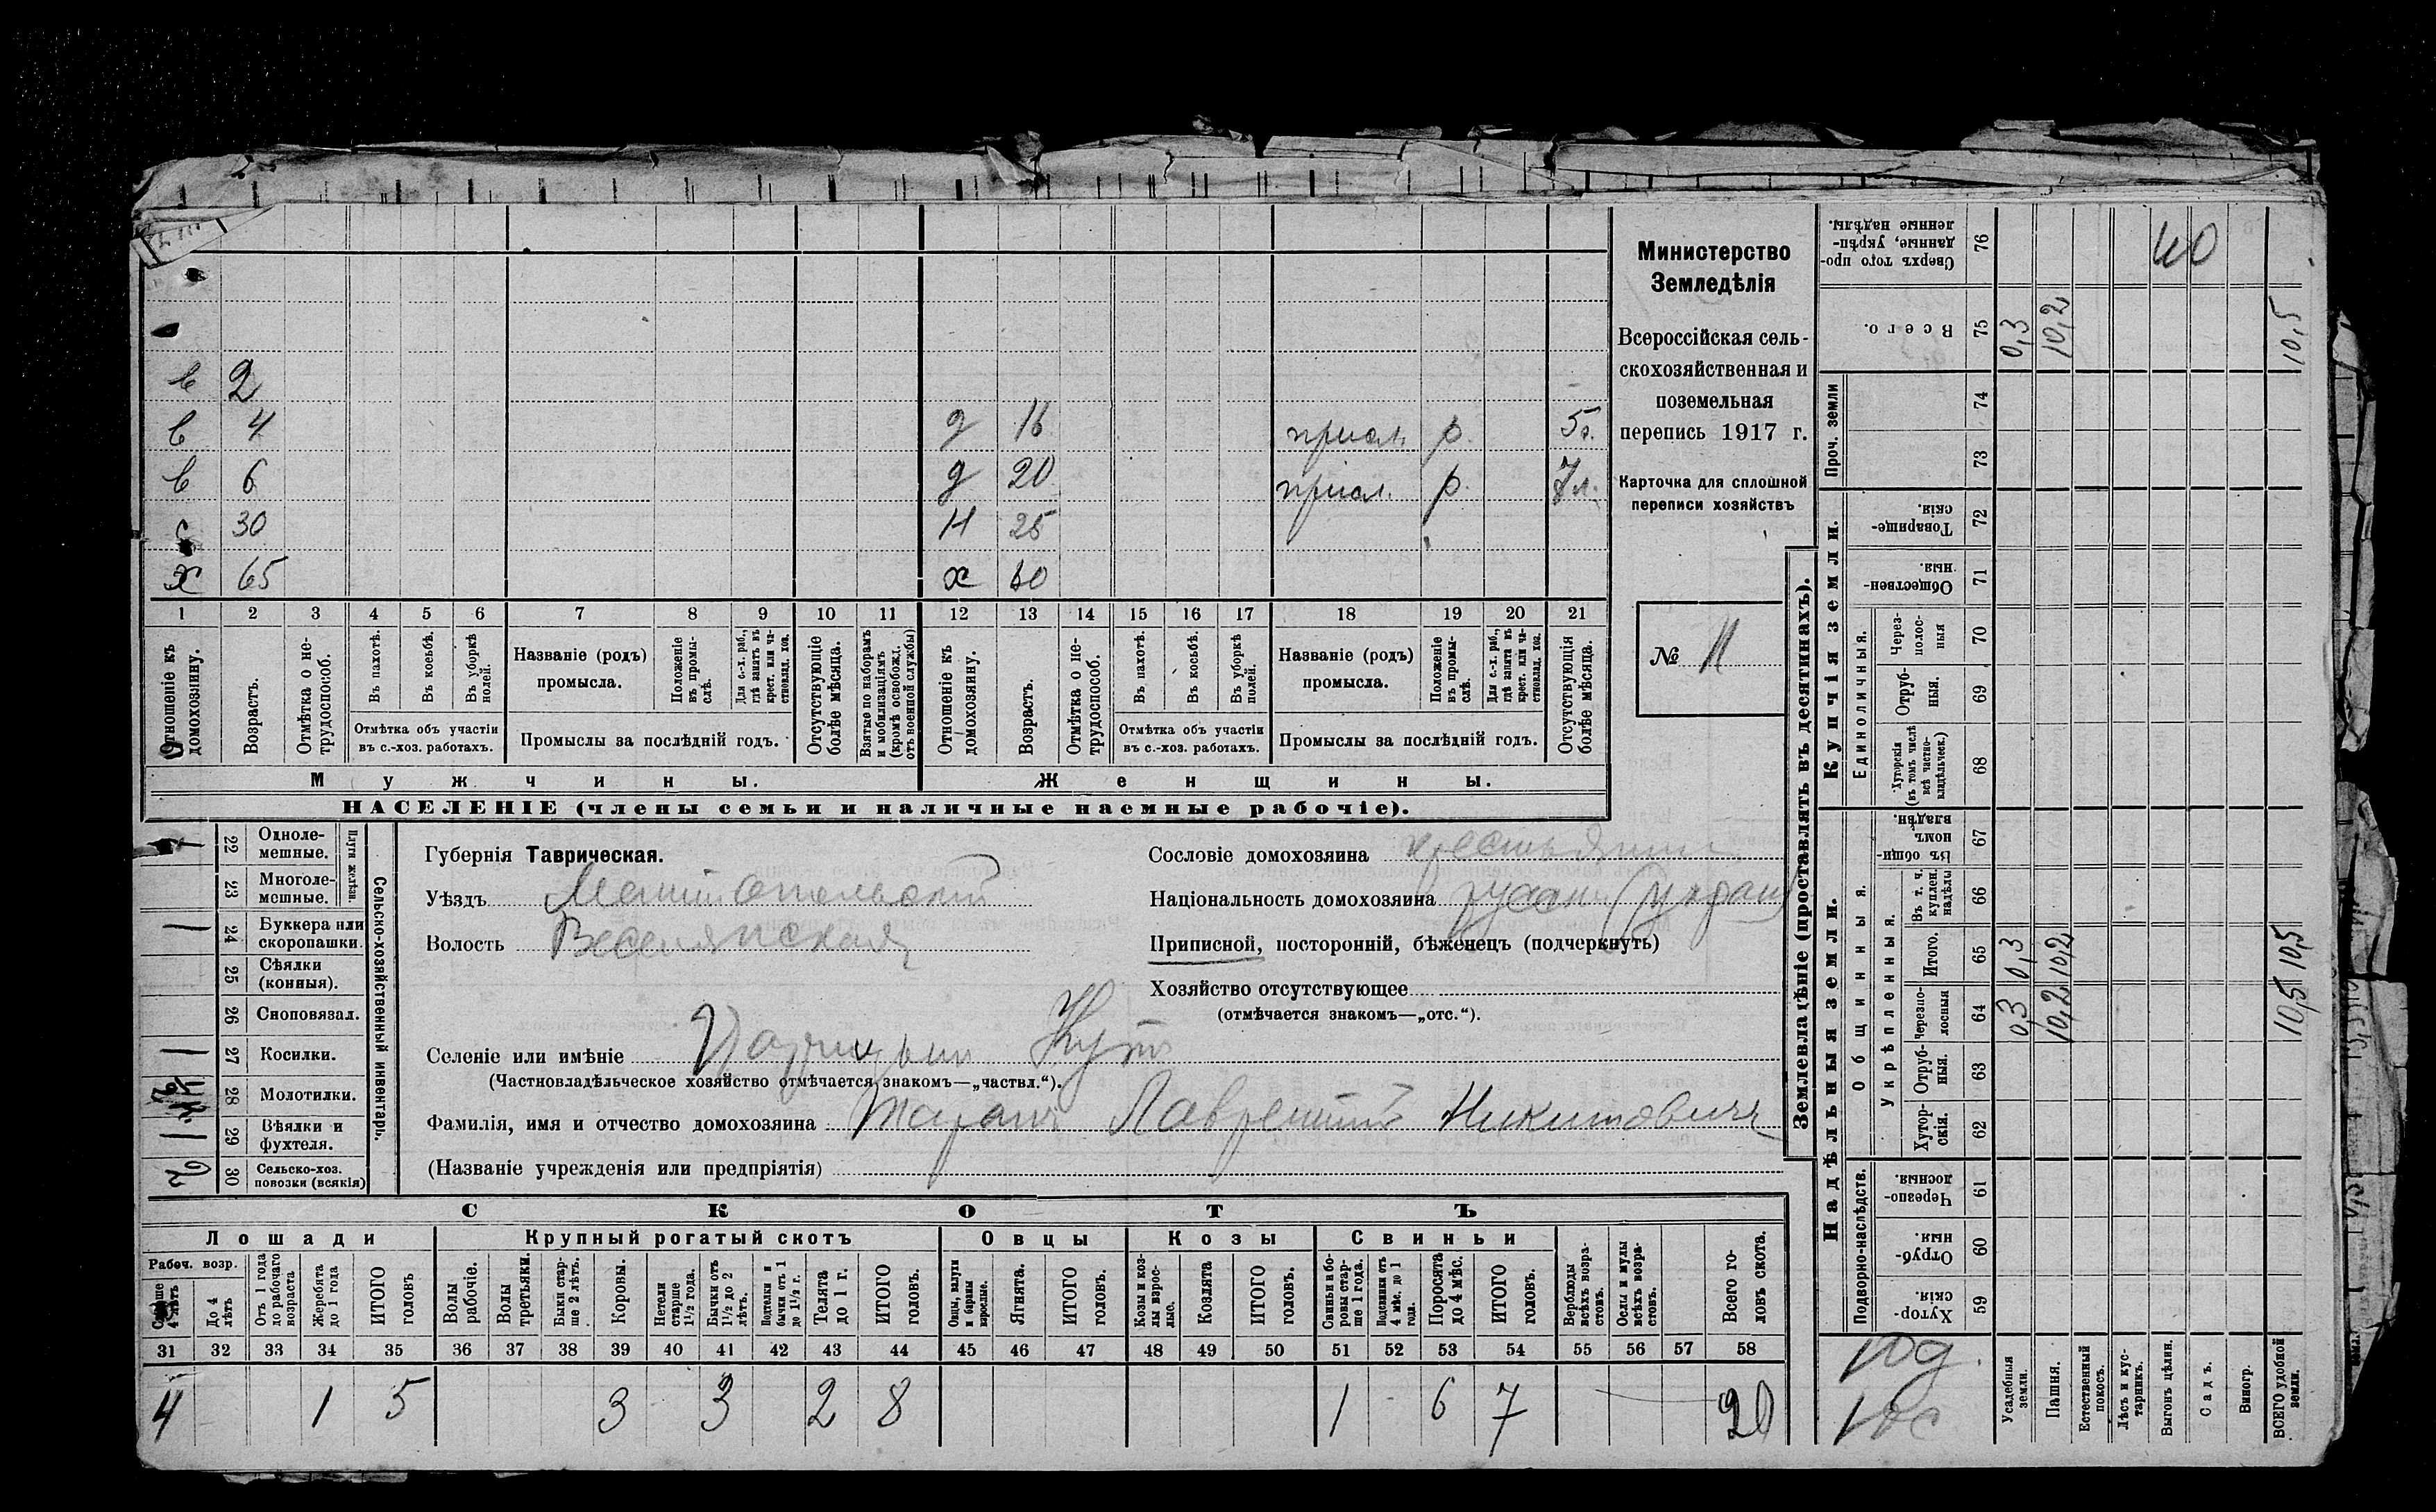 в 2
в 4 д 16 присл. р. 5
в 6 д 20 присл. р.
с 30 Н 25
х 65 х 60
1 2 3 4 5 6 7 8 9 10 11 12 13 14 15 16 17 18 19 20 21
Отношеніе къ домохозяину.
Возрастъ.
Отмѣтка о нетрудоспособ.
Въ пахотѣ.
Въ косьбѣ.
Въ уборкѣ полей.
Отмѣтка объ участіи
въ с.-хоз. работахъ.
Названіе (родъ)
промысла.
Положеніе въ промыслѣ.
Для с.-х. раб., гдѣ занятъ въ крест. или частновлад. хоз.
Промыслы за послѣдній годъ.
Отсутствующіе болѣе мѣсяца.
Взятые по наборамъ и мобилизаціямъ (кромѣ освобожд. отъ военной службы)
Отношеніе къ домохозяину.
Возрастъ.
Отмѣтка о нетрудоспособ.
Въ пахотѣ.
Въ косьбѣ.
Въ уборкѣ полей.
Отмѣтка объ участіи
въ с.-хоз. работахъ.
Названіе (родъ)
промысла.
Положеніе въ промыслѣ.
Для с.-х. раб., гдѣ занята въ крест. или частновлад. хоз.
Промыслы за послѣдній годъ.
Отсутствующія болѣе мѣсяца.
Мужчины.
Женщины.
НАСЕЛЕНІЕ (члены семьи и наличные наемные рабочіе).
Министерство
Земледѣлія
Всероссійская сель-
скохозяйственная и
поземельная
перепись 1917 г.
Карточка для сплошной
переписи хозяйствъ
№ 11
Сельско-хозяйственный инвентарь.
Плуги желѣзн.
22 Одноле-
мешные.
23 Многоле-
мешные.
24 Буккера или
скоропашки.
25 Сѣялки
(конныя).
26 Сноповязал.
27 Косилки.
28 Молотилки.
29 Вѣялки и
фухтеля.
30 Сельско-хоз.
повозки (всякія)
Губернія Таврическая.
Уѣздъ Мелитопольскій
Волость Веселянская
Селеніе или имѣніе Царицынъ Кутъ
(Частновладѣльческое хозяйство отмѣчается знакомъ—„частвл.“).
Фамилія, имя и отчество домохозяина Таранъ Лаврентій Никитовичъ
(Названіе учрежденія или предпріятія)
Сословіе домохозяина крестьянин
Національность домохозяина русскій (украин
Приписной, посторонній, бѣженецъ (подчеркнуть)
Хозяйство отсутствующее
(отмѣчается знакомъ—„отс.“).
СКОТЪ
Лошади Крупный рогатый скотъ Овцы Козы Свиньи
Рабоч. возр.
Старше 4 лѣтъ
До 4 лѣтъ
Отъ 1 года до рабочаго возраста
Жеребята до 1 года
ИТОГО головъ
Волы рабочіе.
Волы третьяки.
Быки старше 2 лѣтъ.
Коровы.
Нетели старше 1½ года.
Бычки отъ 1½ до 2 лѣтъ.
Подтелки и бычки отъ 1 до 1½ г.
Телята до 1 г.
ИТОГО головъ.
Овцы, валухи и бараны взрослые.
Ягнята.
ИТОГО головъ.
Козы и козлы взрослые.
Козлята
ИТОГО головъ.
Свиньи и боровы старше 1 года.
Подсвинки отъ 4 мѣс. до 1 года.
Поросята до 4 мѣс.
ИТОГО головъ.
Верблюды всѣхъ возрастовъ.
Ослы и мулы всѣхъ возрастовъ.
Всего головъ скота.
31 32 33 34 35 36 37 38 39 40 41 42 43 44 45 46 47 48 49 50 51 52 53 54 55 56 57 58
4 1 5 3 3 2 8 1 6 7 20
Землевладѣніе (проставлять въ десятинахъ).
Надѣльныя земли.
Купчія земли.
Проч. земли
Подворно-наслѣдств.
Общинныя
Укрѣпленныя.
Единоличныя.
Сверхъ того проданные, укрѣпленные надѣлы. 76 40
Всего. 75 0,3 10,2 10,5
74
73
Товарищескія. 72
Общественныя. 71
Черезполосныя 70
Отрубныя. 69
Хуторскія (въ томъ числѣ всѣ частновладѣльческ.) 68
Въ общинномъ владѣн. 67
Въ т. ч. куплен. надѣлы 66
Итого. 65 0,3 10,2 10,5
Черезполосныя 64 0,3 10,2 10,5
Отрубныя. 63
Хуторскія. 62
Черезполосныя. 61
Отрубныя. 60
Хуторскія. 59
10д.
Усадебныя земли.
Пашня.
Естественный покосъ.
Лѣсъ и кустарникъ.
Выгонъ цѣлин.
Садъ.
Виногр.
ВСЕГО удобной земли.